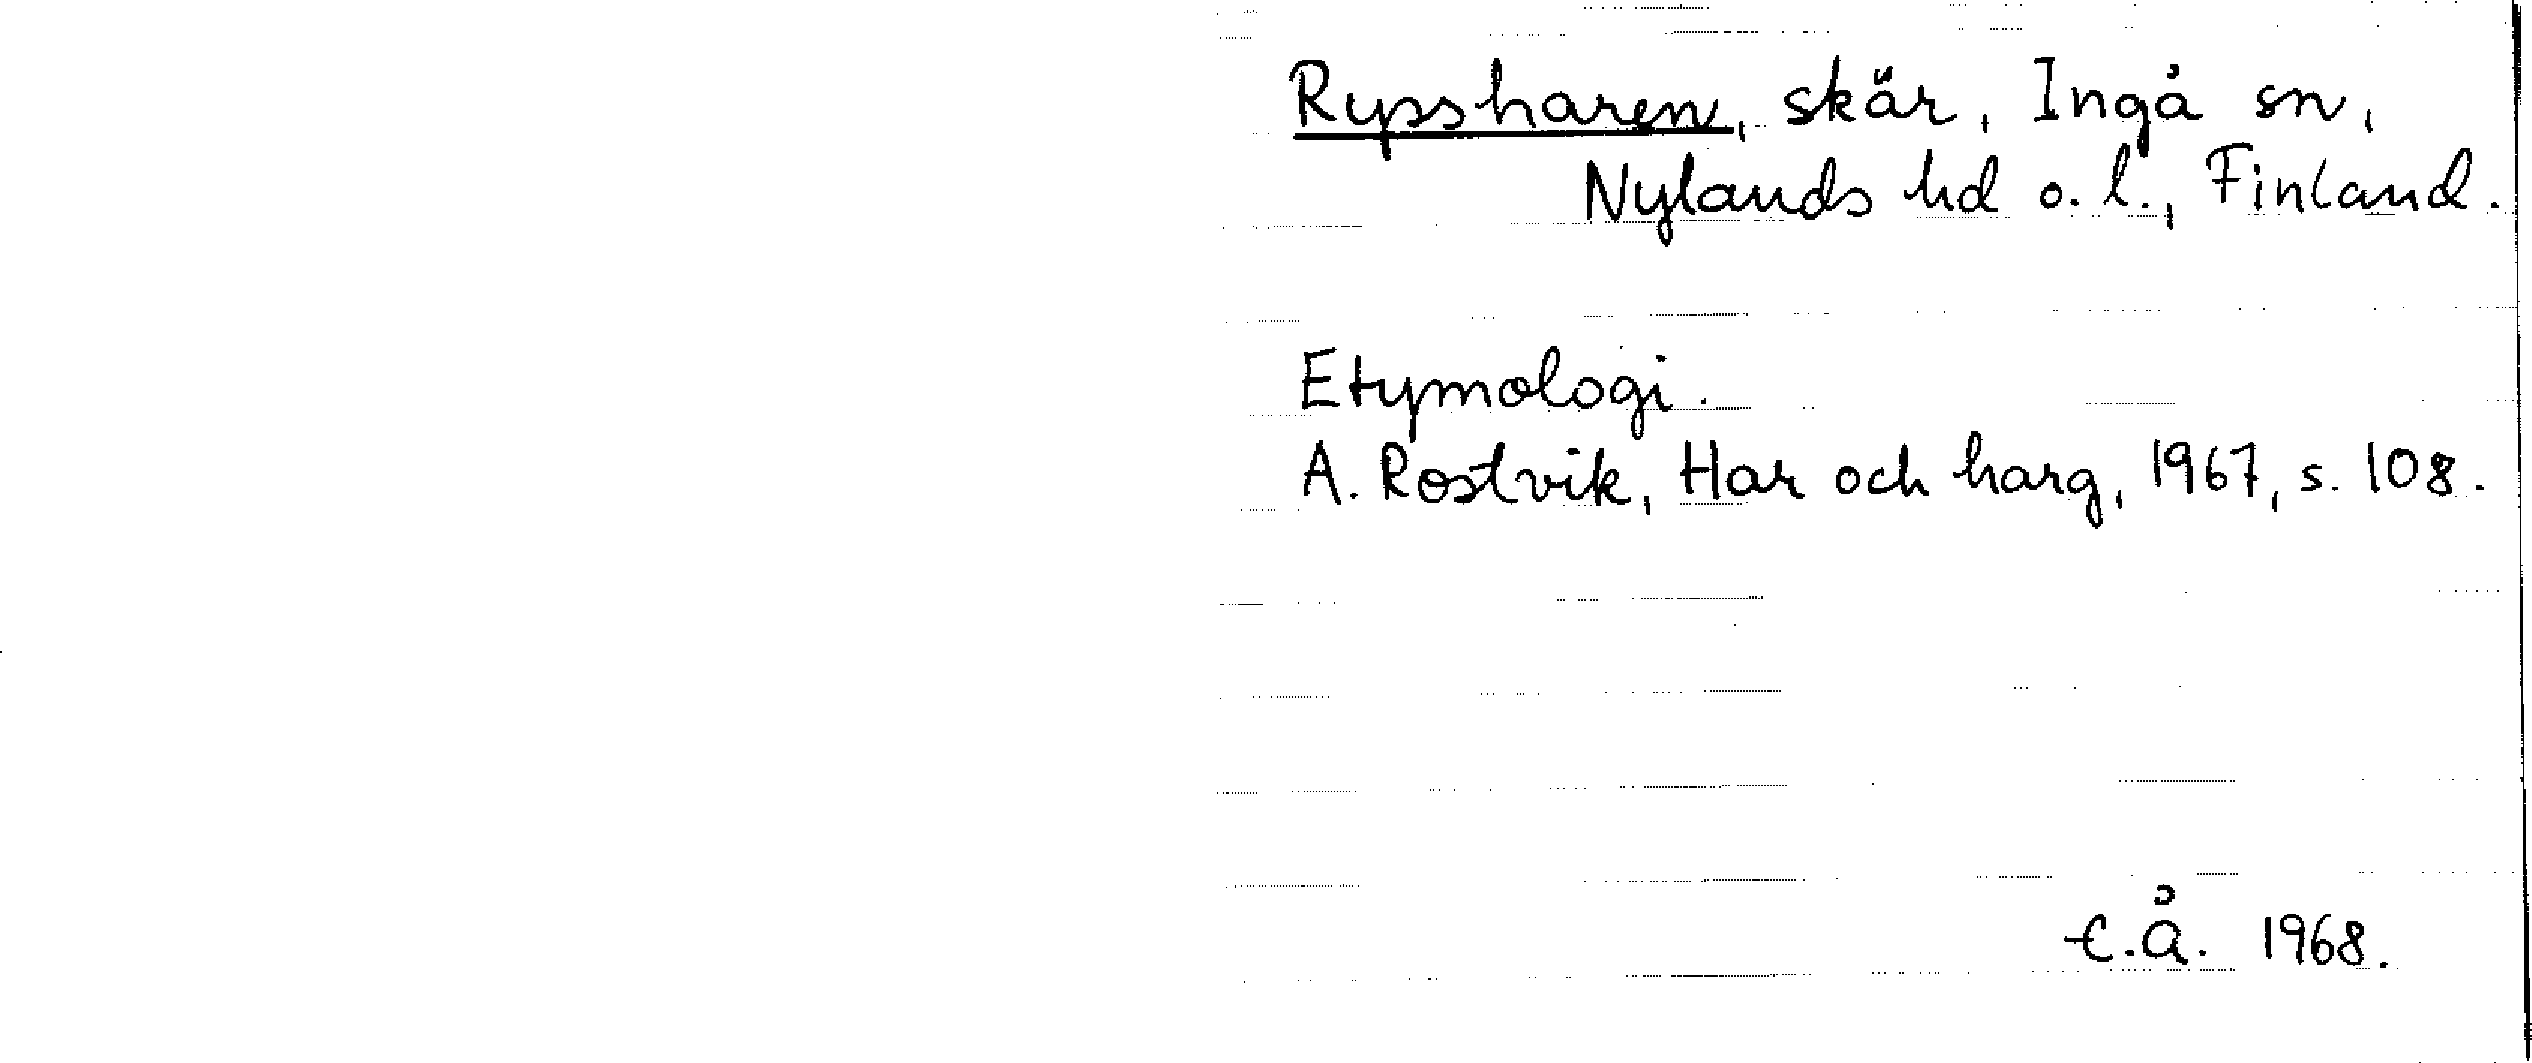 Ryssharen, skär, Ingå sn,
Nylands hd o. l., Finland.
Etymologi.
A. Rostvik, Har och harg, 1967, s. 108.
C.Å. 1968.